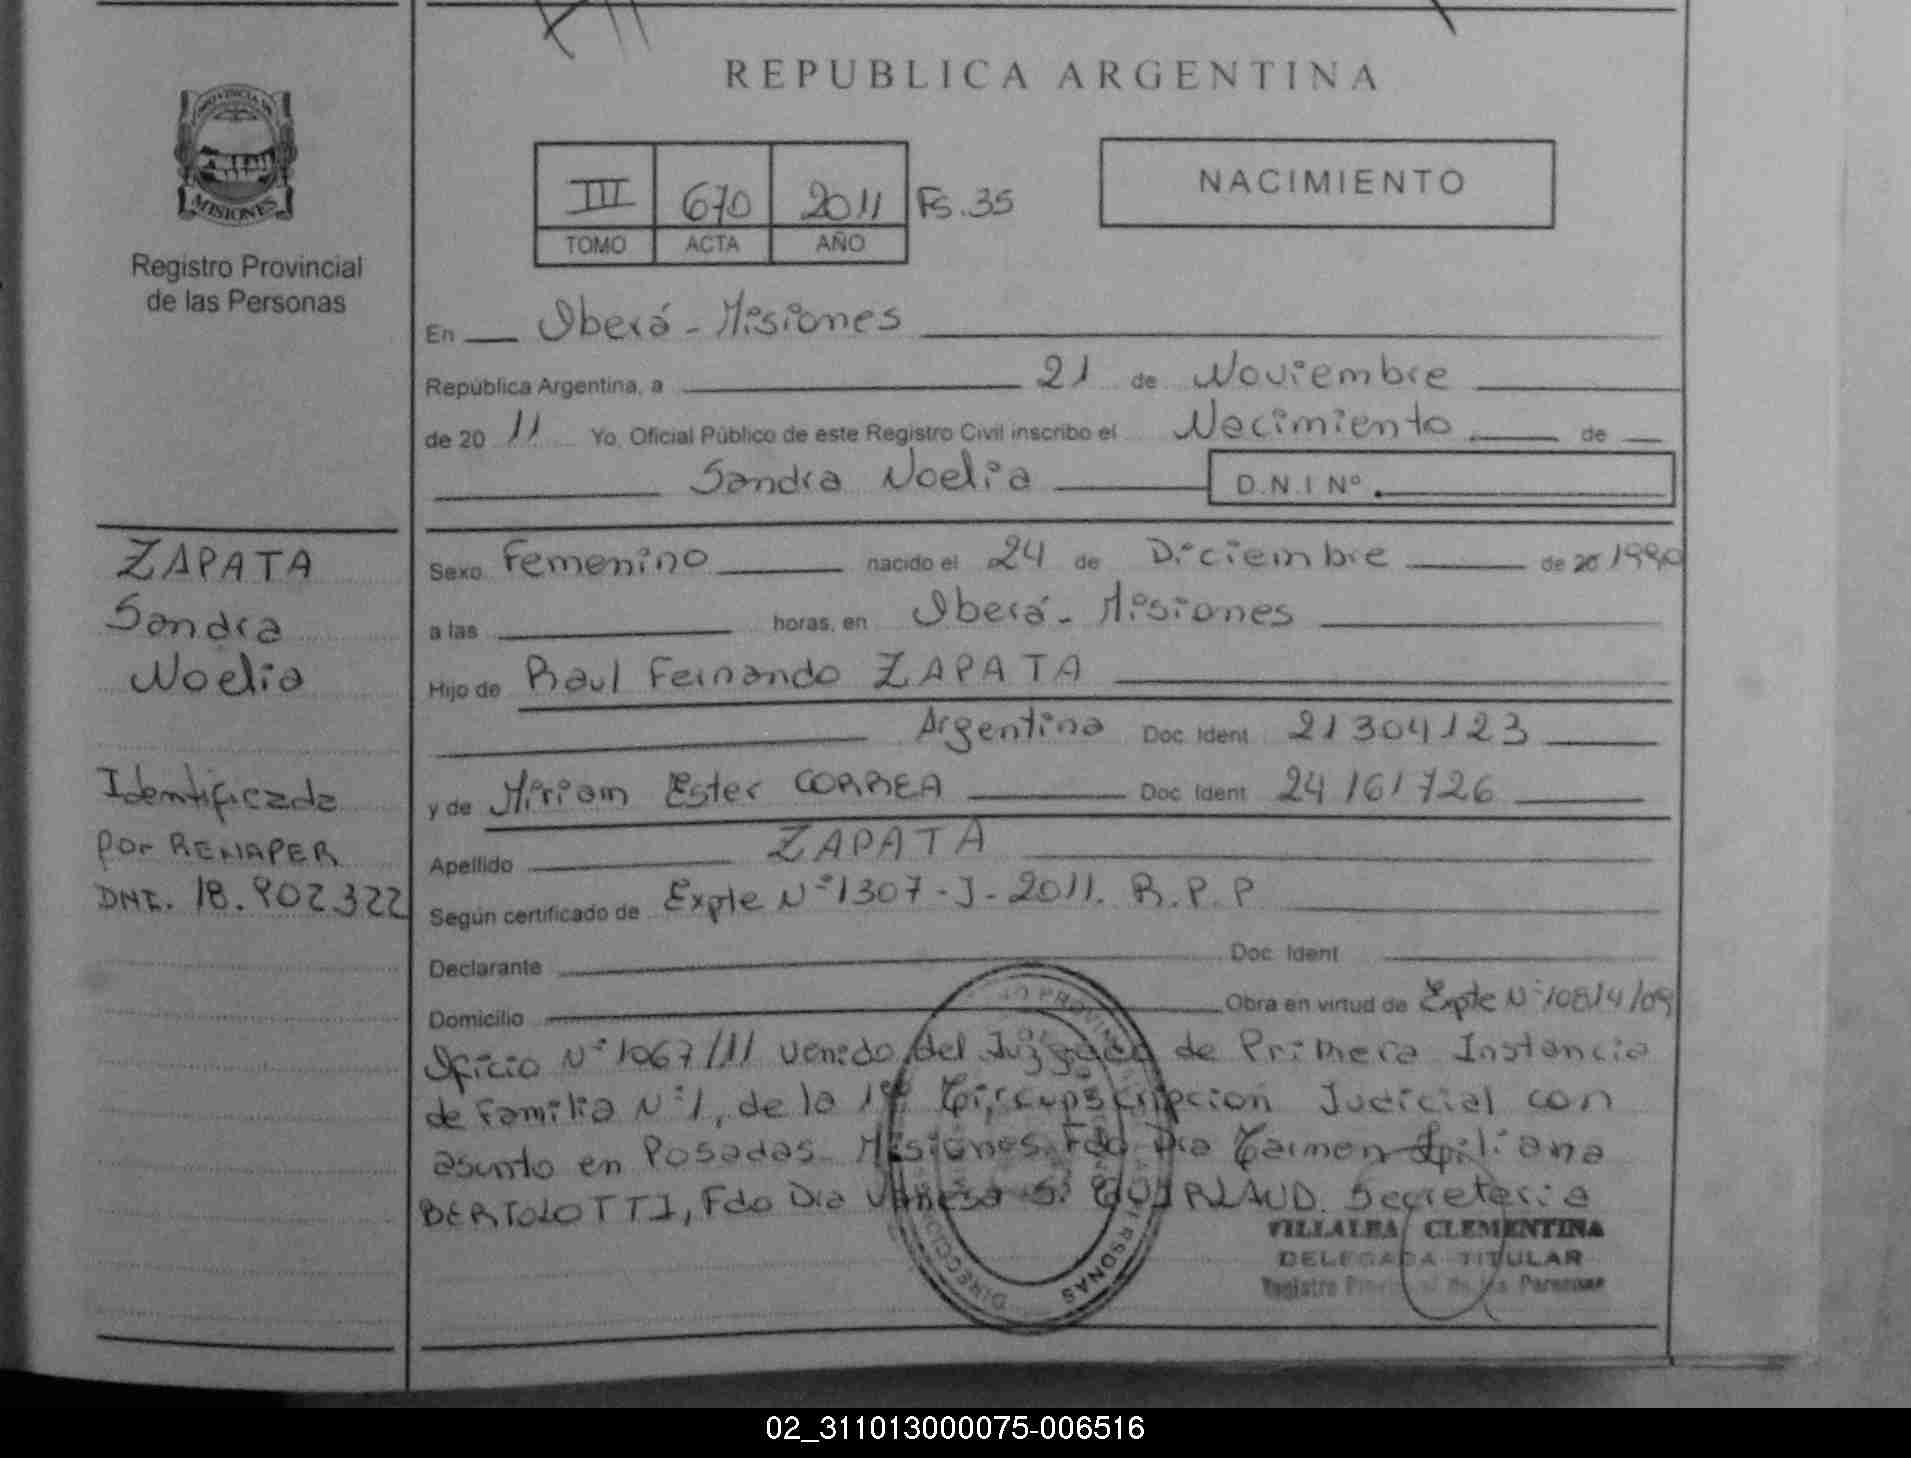 REPUBLICA ARGENTINA
PROVINCIA DE
MISIONES
Registro Provincial
de las Personas
III 670 2011 Fs. 35
TOMO ACTA AÑO
NACIMIENTO
En Oberá - Misiones
República Argentina, a 21 de Noviembre
de 20 11 Yo, Oficial Público de este Registro Civil inscribo el Nacimiento de
Sandra Noelia D.N.I Nº
ZAPATA
Sandra
Noelia
Identificada
por RENAPER
DNI. 18.902322
Sexo Femenino nacido el 24 de Diciembre de 20 1990
a las horas, en Oberá - Misiones
Hijo de Raul Fernando ZAPATA
Argentino Doc. Ident 21304123
y de Miriam Ester CORREA Doc. Ident 24161726
Apellido ZAPATA
Según certificado de Expte Nº 1307-J-2011. R.P.P
Declarante Doc. Ident
Domicilio Obra en virtud de Expte Nº 10814/09
Oficio Nº 1067/11 venido del Juzgado de Primera Instancia
de Familia Nº 1, de la 1ª Circunscripcion Judicial con
asunto en Posadas - Misiones. Fdo Dra Carmen
BERTOLOTTI, Fdo Dra Vanesa S. Secretaria
VILLALBA CLEMENTINA
DELEGADA TITULAR
Registro Provincial de las Personas
02_311013000075-006516